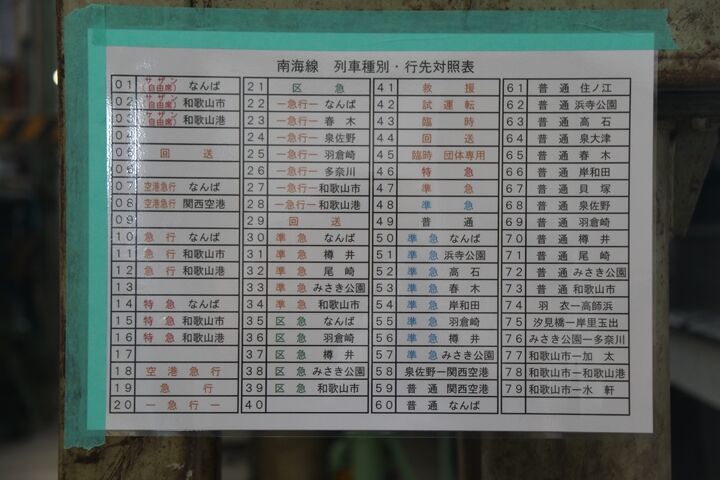 南海線 列車種別・行先対照表
01 サザン(自由席) なんば
02 サザン(自由席) 和歌山市
03 サザン(自由席) 和歌山港
04
05 回送
06
07 空港急行 なんば
08 空港急行 関西空港
09
10 急行 なんば
11 急行 和歌山市
12 急行 和歌山港
13
14 特急 なんば
15 特急 和歌山市
16 特急 和歌山港
17
18 空港急行
19 急行
20 ー急行ー
21 区急
22 ー急行ー なんば
23 ー急行ー 春木
24 ー急行ー 泉佐野
25 ー急行ー 羽倉崎
26 ー急行ー 多奈川
27 ー急行ー 和歌山市
28 ー急行ー 和歌山港
29 回送
30 準急 なんば
31 準急 樽井
32 準急 尾崎
33 準急 みさき公園
34 準急 和歌山市
35 区急 なんば
36 区急 羽倉崎
37 区急 樽井
38 区急 みさき公園
39 区急 和歌山市
40
41 救援
42 試運転
43 臨時
44 回送
45 臨時 団体専用
46 特急
47 準急
48 準急
49 普通
50 準急 なんば
51 準急 浜寺公園
52 準急 高石
53 準急 春木
54 準急 岸和田
55 準急 羽倉崎
56 準急 樽井
57 準急 みさき公園
58 泉佐野ー関西空港
59 普通 関西空港
60 普通 なんば
61 普通 住ノ江
62 普通 浜寺公園
63 普通 高石
64 普通 泉大津
65 普通 春木
66 普通 岸和田
67 普通 貝塚
68 普通 泉佐野
69 普通 羽倉崎
70 普通 樽井
71 普通 尾崎
72 普通 みさき公園
73 普通 和歌山市
74 羽衣ー高師浜
75 汐見橋ー岸里玉出
76 みさき公園ー多奈川
77 和歌山市ー加太
78 和歌山市ー和歌山港
79 和歌山市ー水軒